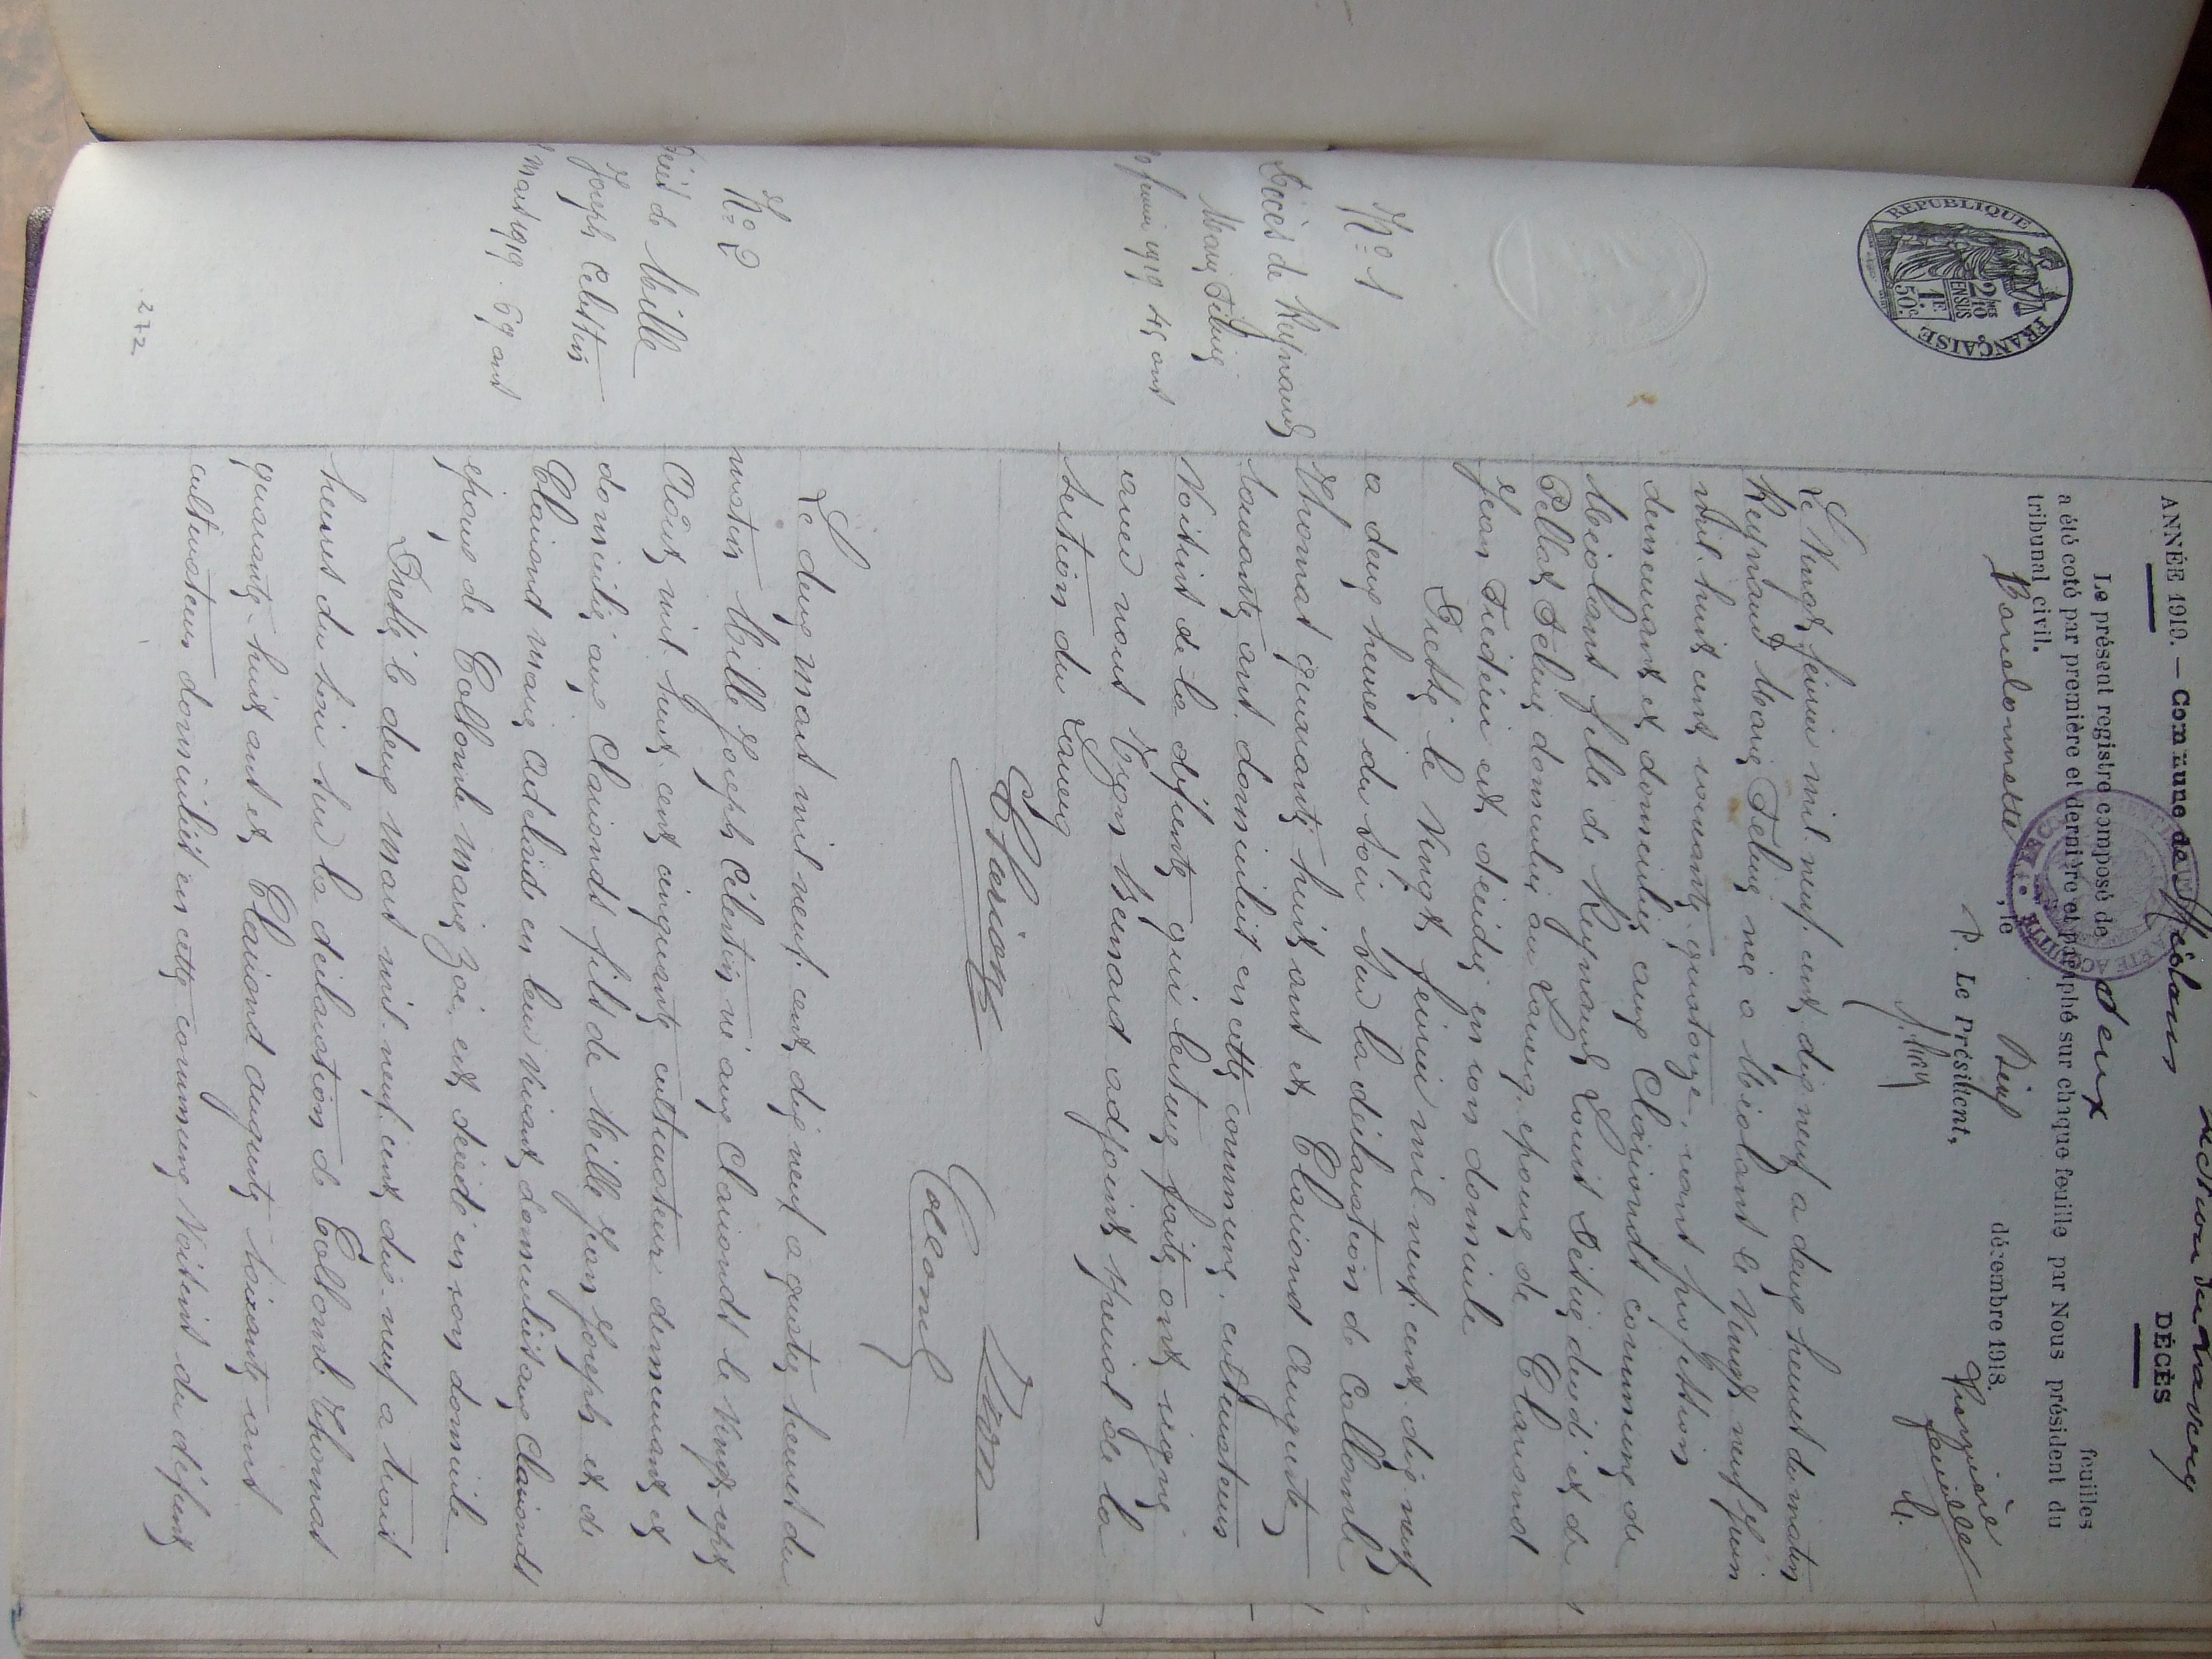 Section du Laverq
ANNÉE 1919. — Commune de Méolans DÉCÈS
Le présent registre composé de deux feuilles
a été coté par première et dernière et paraphé sur chaque feuille par Nous président du
tribunal civil.
Barcelonnette, le Dix décembre 1918.
P. Le Président,
Première
feuille
RÉPUBLIQUE FRANÇAISE
2/10 EN SUS
1F 50c
N° 1
Décès de Reynaud
Marie Féline
20 février 1919 45 ans
Le Vingt février mil neuf cent dix neuf a deux heures du matin
Reynaud Marie Féline née a Méolans le Vingt neuf Juin
mil huit cent soixante quatorze, sans profession
demeurant et domiciliée aux Clarionds commune de
Méolans fille de Reynaud Louis décédé et de
Pellat Féline domiciliée au Laverq, épouse de Clariond
Jean Frédéric est décédée en son domicile
Dressé le Vingt février mil neuf cent dix neuf
a deux heures du soir sur la déclaration de Collomb
Thomas quarante huit ans et Clariond Auguste
soixante ans domiciliés en cette commune, cultivateurs
Voisins de la défunte qui lecture faite ont signé
avec nous Lyon Bernard adjoint spécial de la
section du Laverq
Clariond Lyon
Collomb
N° 2
Décès de Mille
Joseph Célestin
2 Mars 1919. 69 ans
Le deux Mars mil neuf cent dix neuf a quatre heures du
matin Mille Joseph Célestin né aux Clarionds le Vingt sept
Août mil huit cent cinquante cultivateur demeurant et
domicilié aux Clarionds fils de Mille Jean Joseph et de
Clariond Marie Adélaïde en leur vivant domiciliés aux Clarionds
époux de Collomb Marie Zoé, est décédé en son domicile
Dressé le deux Mars mil neuf cent dix-neuf a trois
heures du soir sur la déclaration de Collomb Thomas
quarante-huit ans et Clariond auguste soixante ans
cultivateurs domiciliés en cette commune Voisins du défunt
272